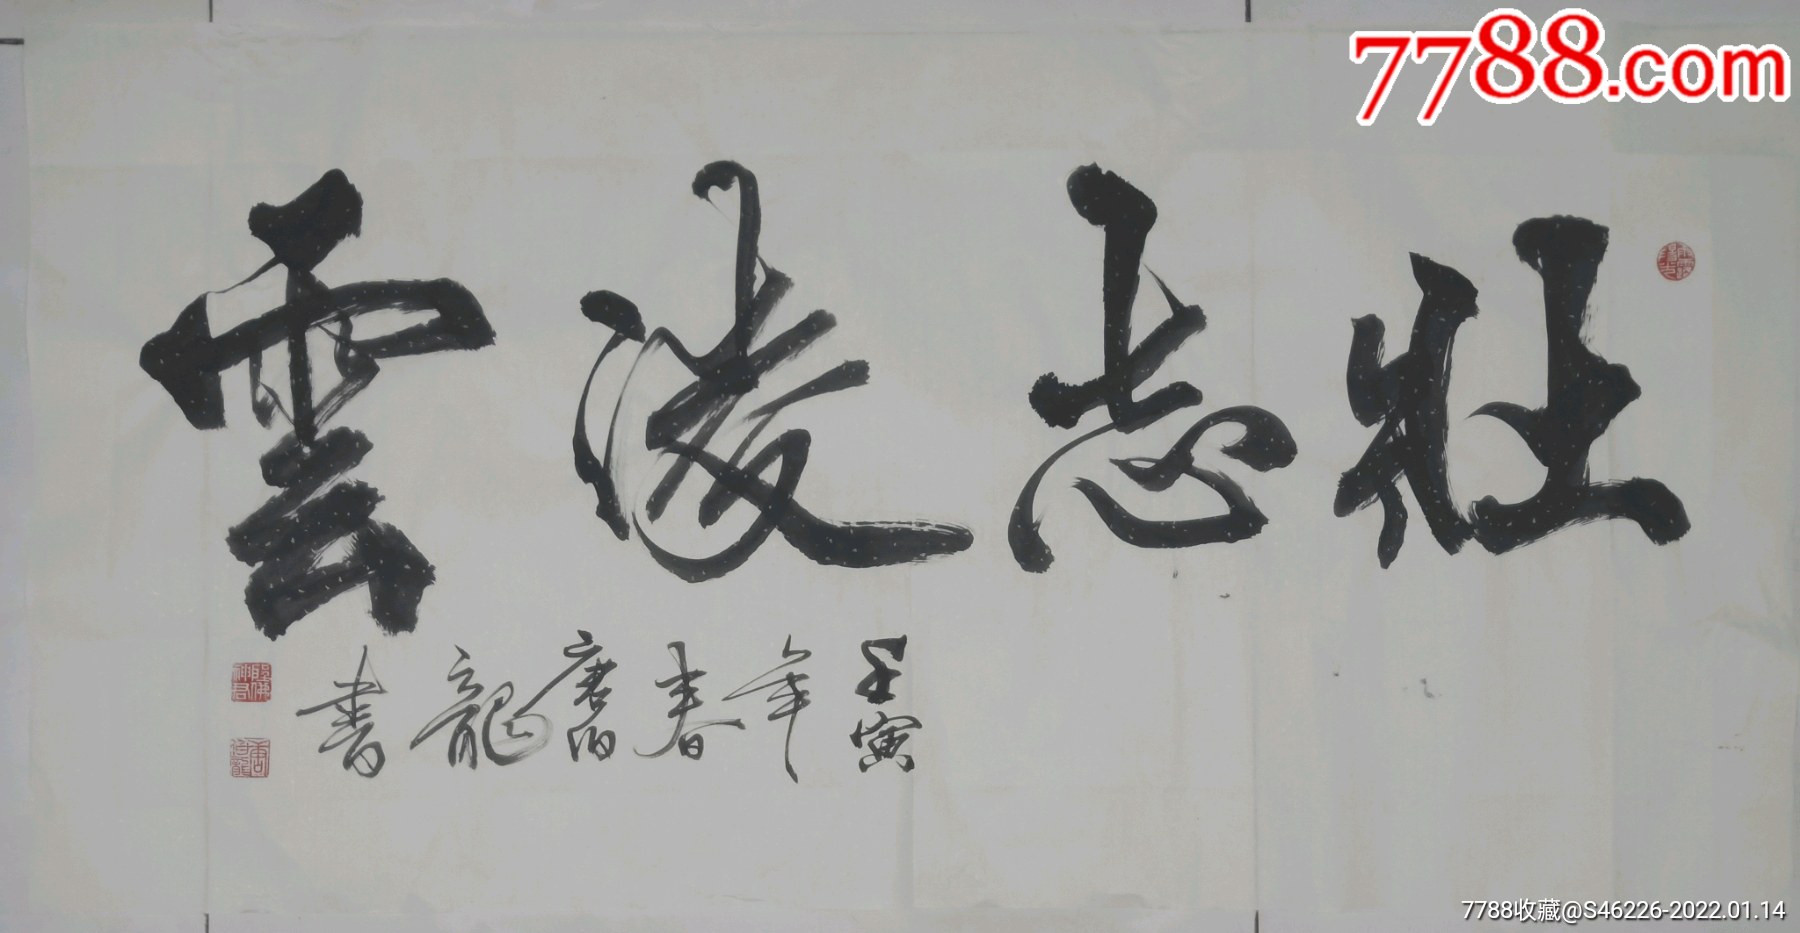 7788.com
壮志凌雲
壬寅年春唐伯龍書
7788收藏@S46226-2022.01.14